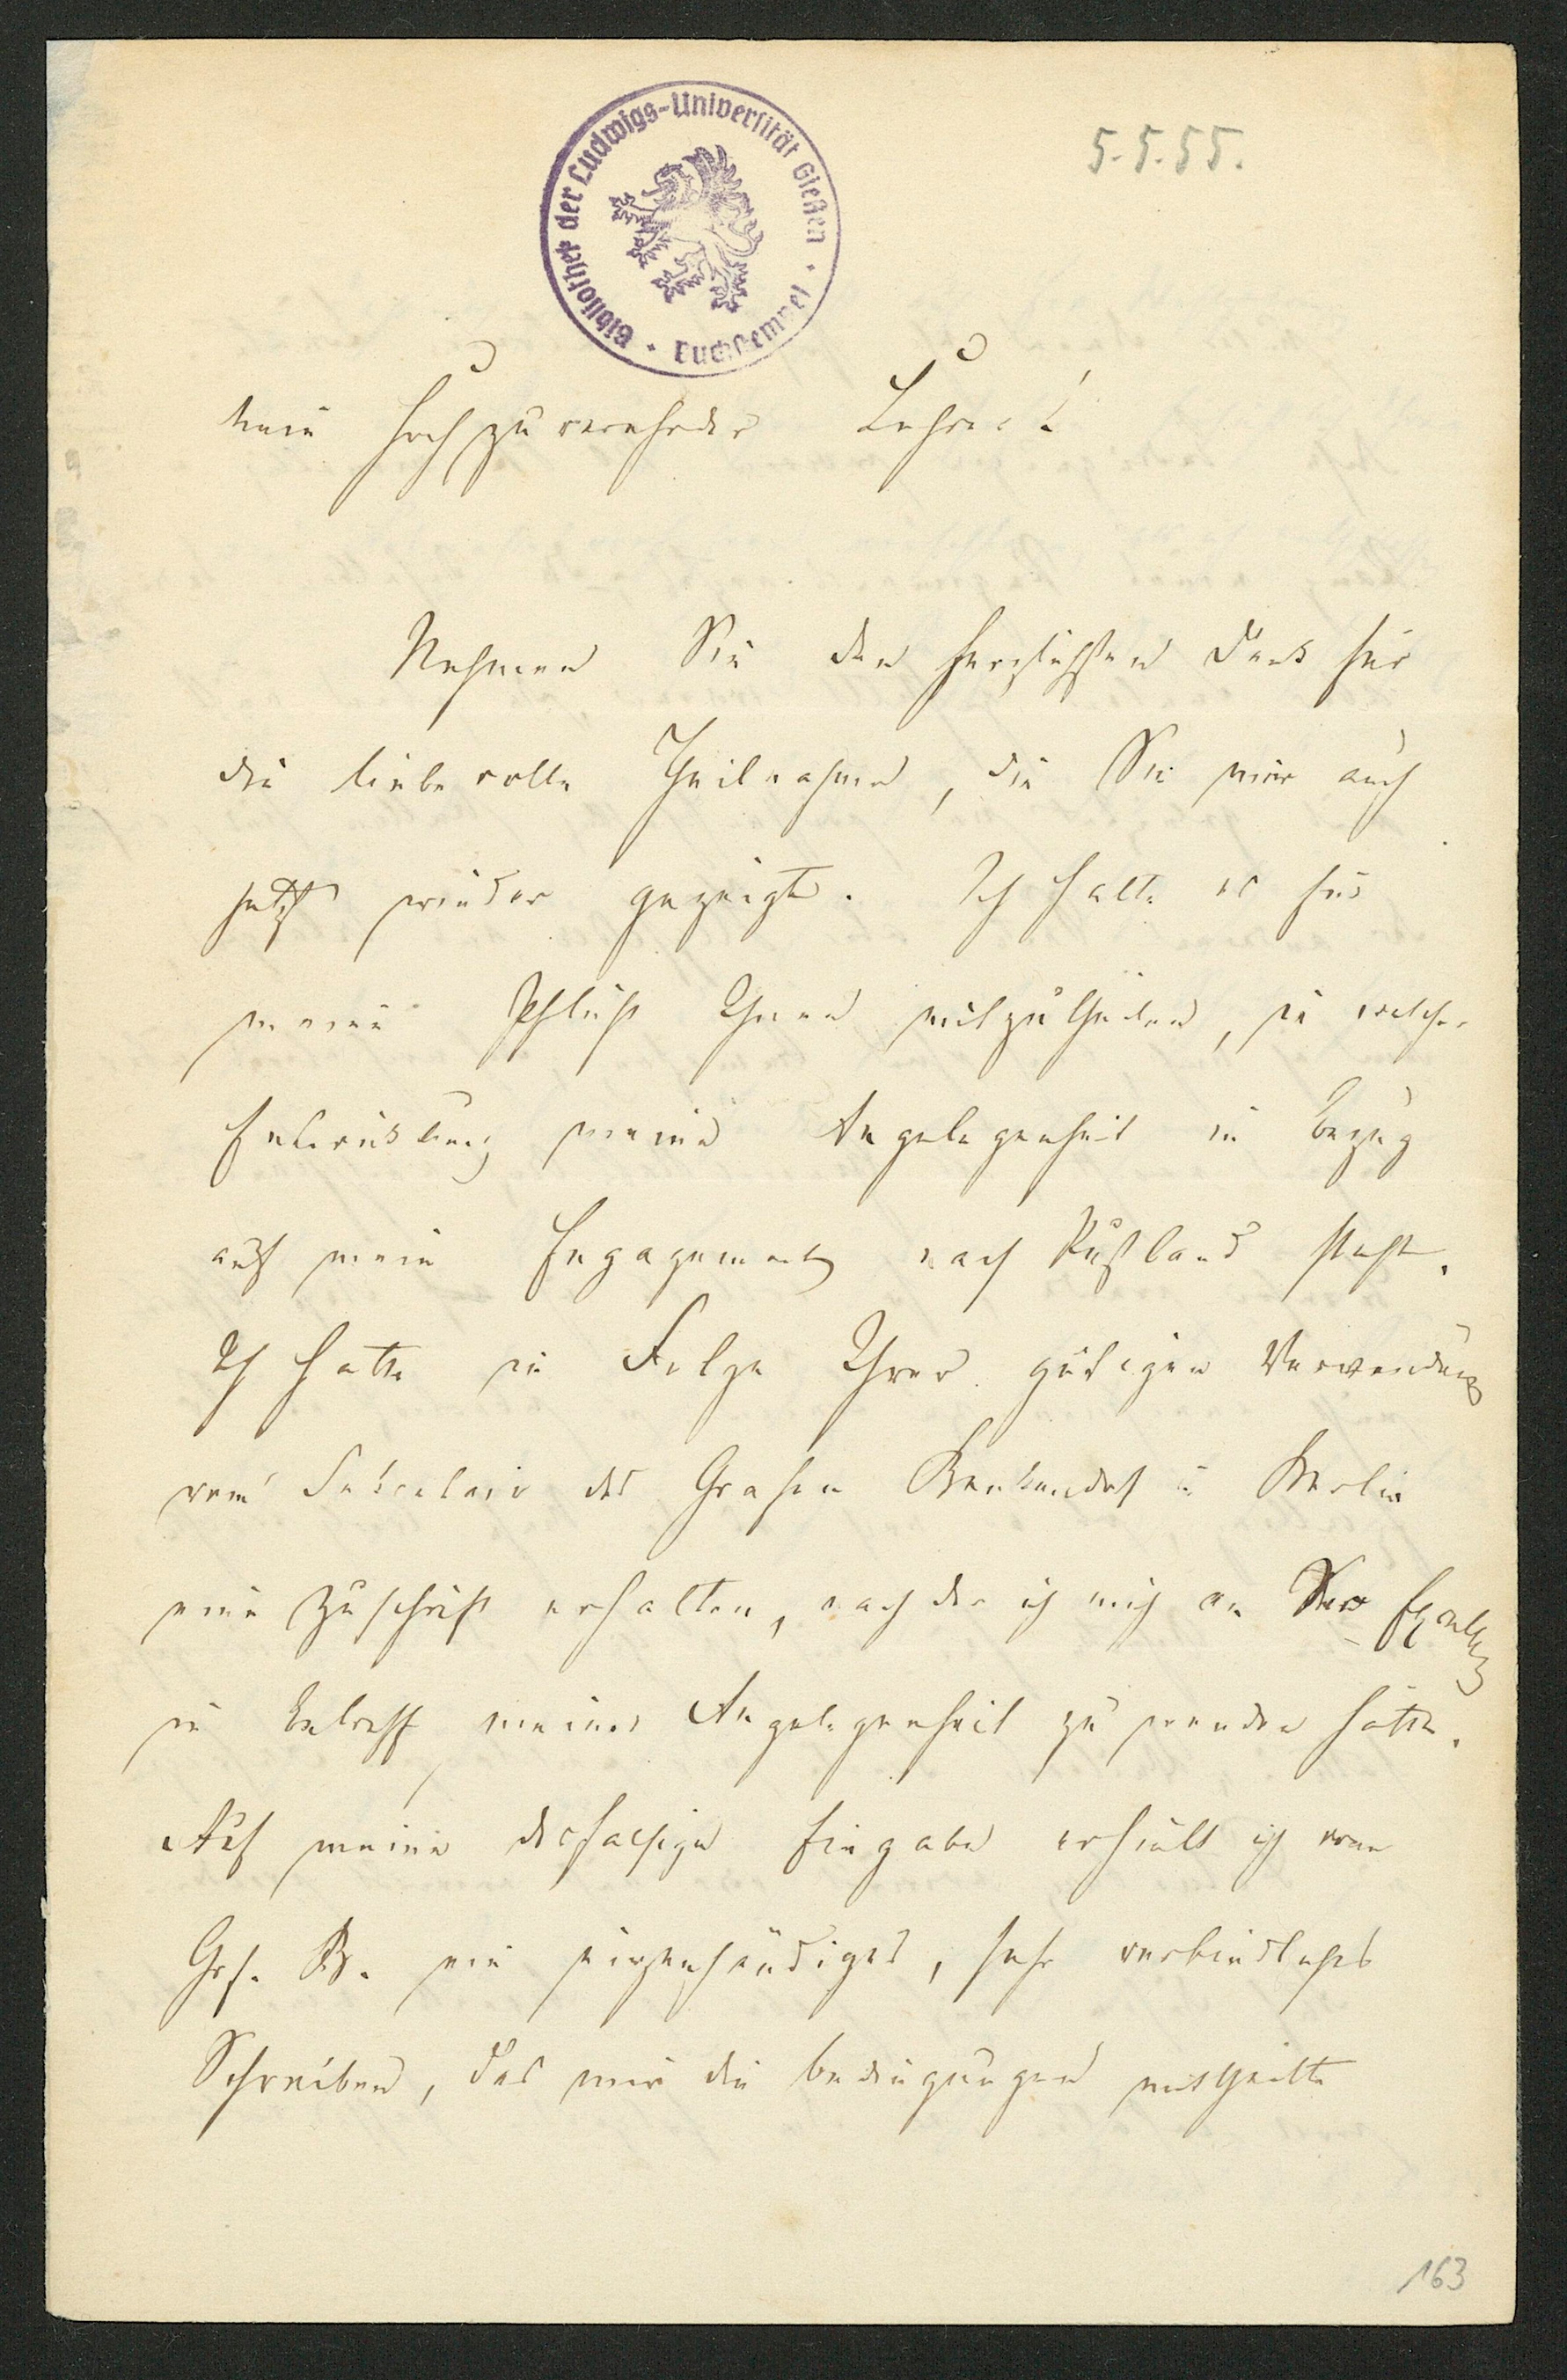 Bibliothek der Ludwigs-Universität Gießen · Buchstempel ·
5.5.55.
Mein hochzuverehrender Lehrer!
Nehmen Sie den herzlichsten Dank für
die liebevolle Theilnahme, die Sie mir auch
jetzt wieder gezeigt. Ich halte es für
meine Pflicht Ihnen mitzutheilen, in welcher
Entwicklung meine Angelegenheit in Bezug
auf mein Engagement nach Rußland steht.
Ich hatte in Folge Ihrer gütigen Verwendung
vom Sekretair des Grafen Benkendorf in Berlin
eine Zuschrift erhalten, nach der ich mich an Exzellenz
in Betreff meiner Angelegenheit zu wenden hätte.
Auf meine desfalsige Eingabe erhielt ich vom
Grf. B. ein eigenhändiges, sehr verbindliches
Schreiben, das mir die Bedingungen mittheilte
163